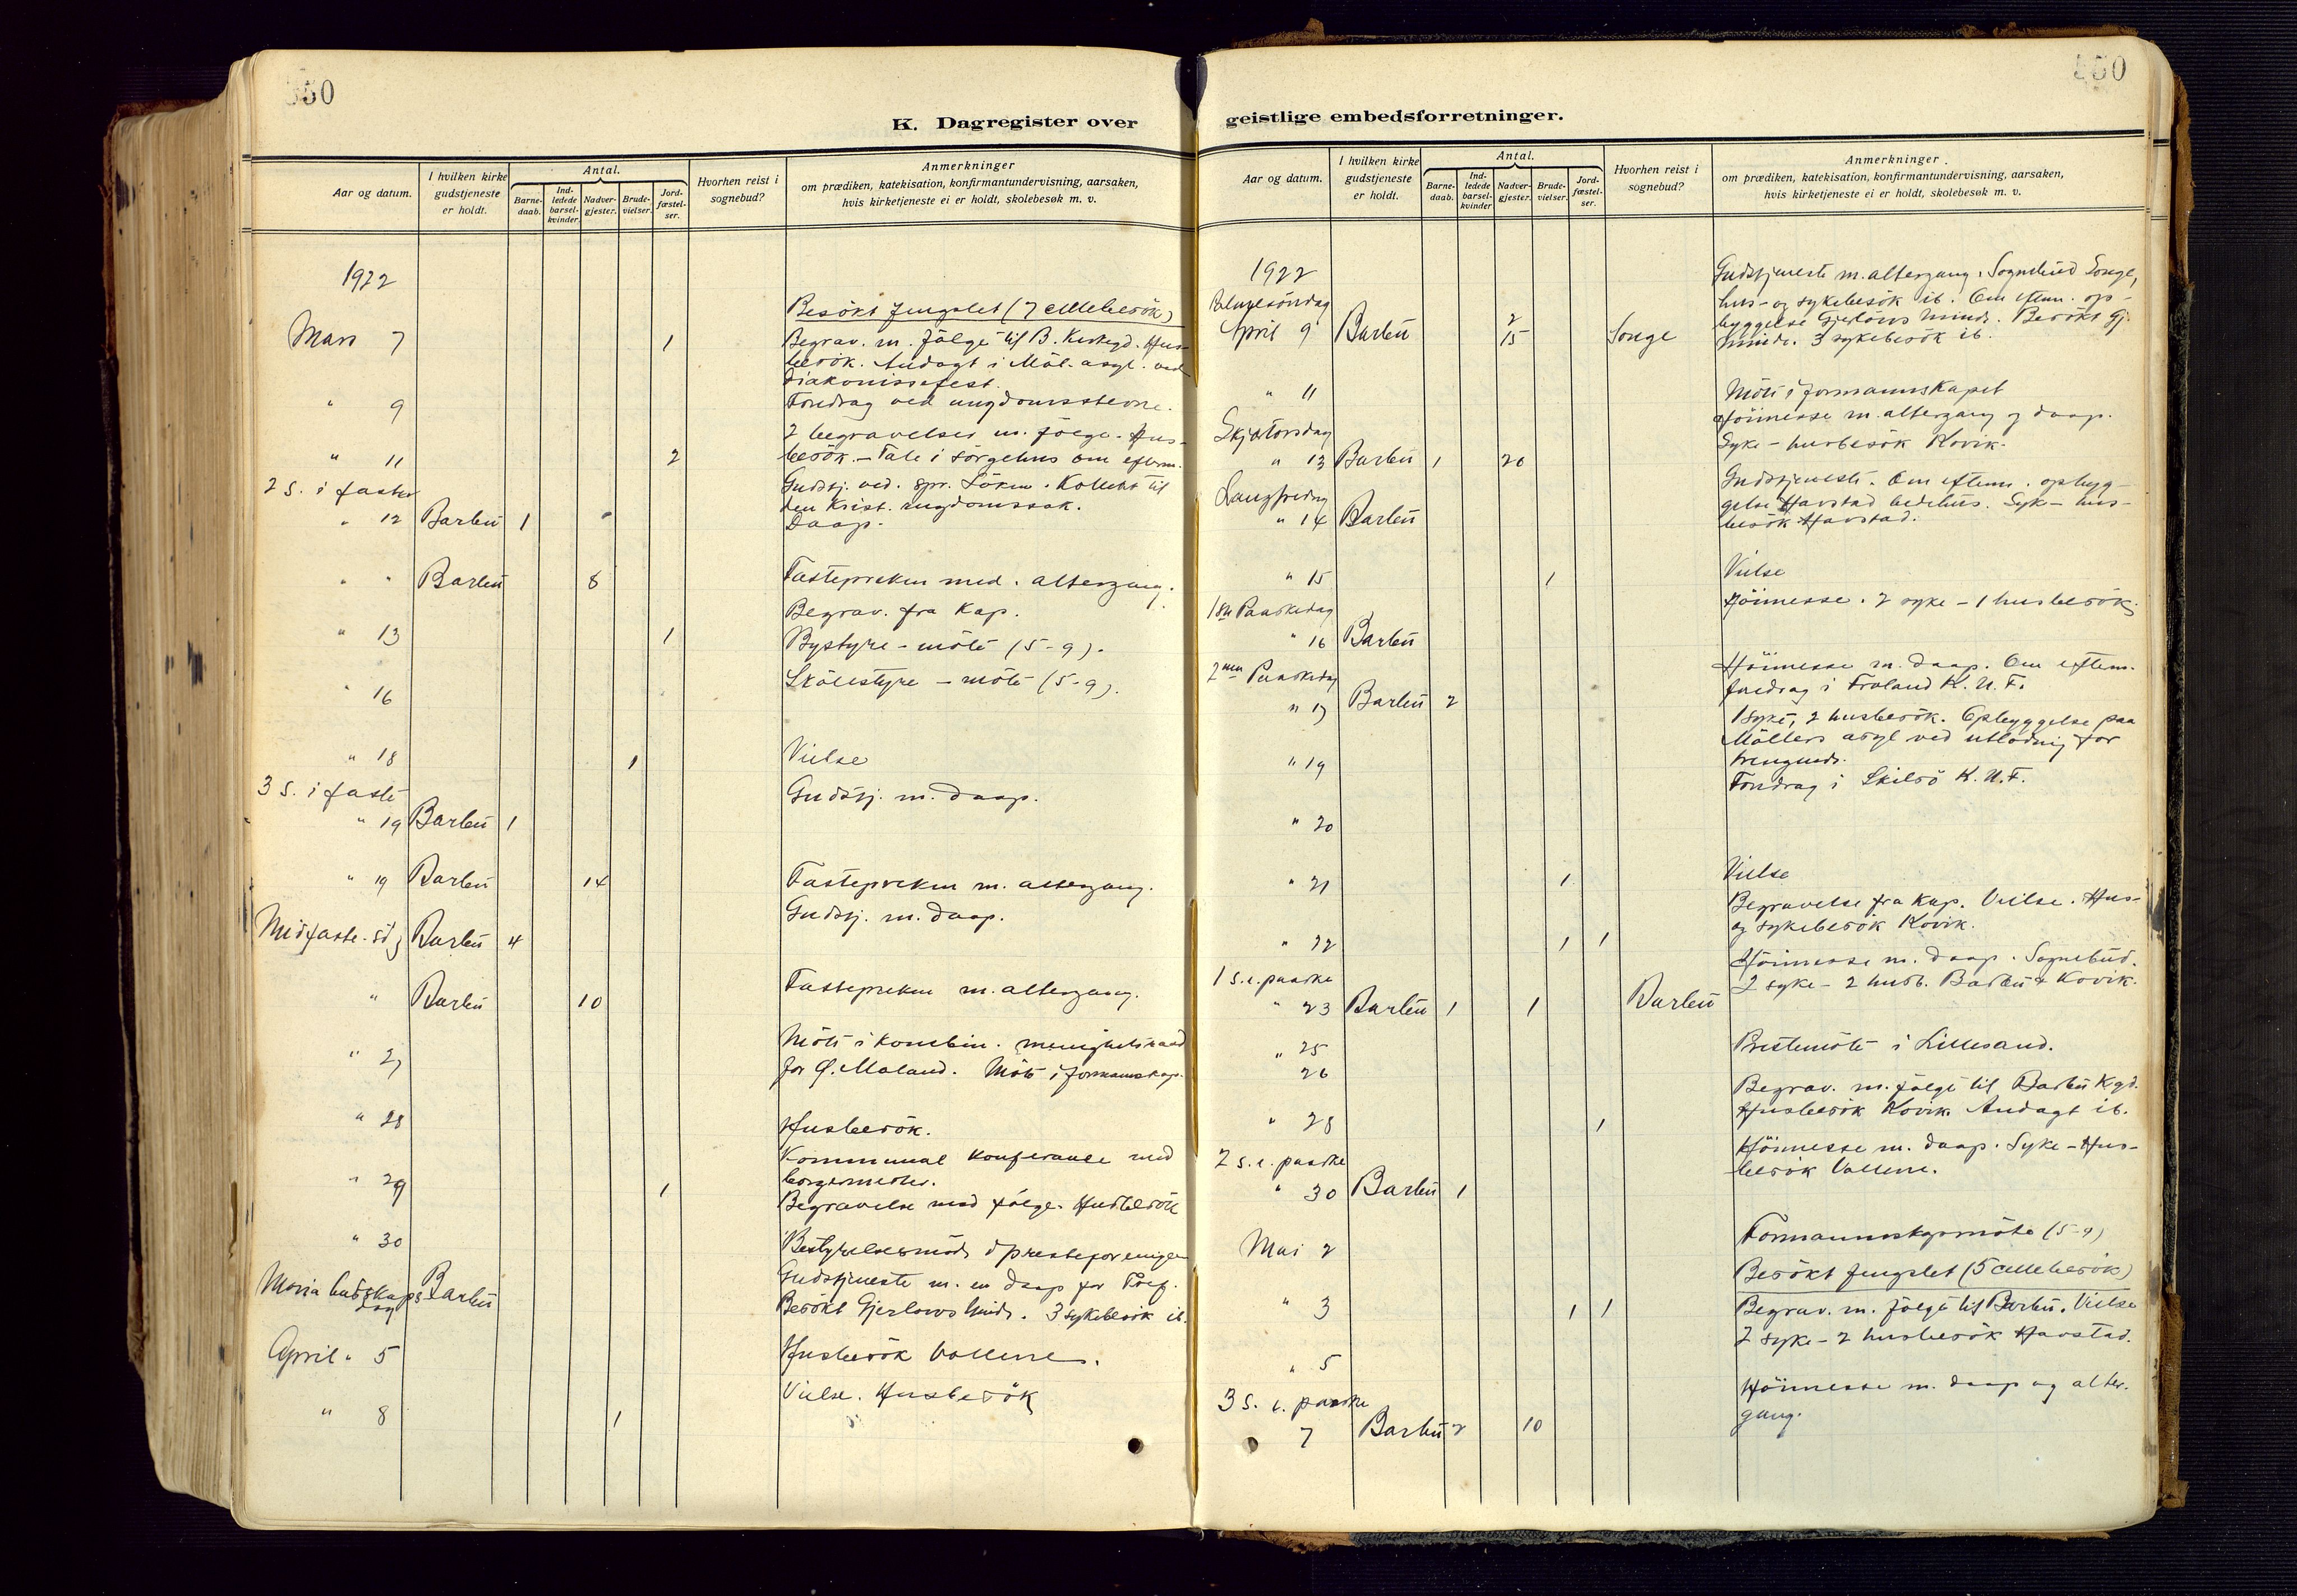 550
K. Dagregister over
Aar og datum.
I hvilken kirke gudstjeneste er holdt.
Antal.
Barne-daab.
Ind-ledede barsel-kvinder.
Nadver-gjester.
Brude-vielser.
Jord-fæstel-ser.
Hvorhen reist i sognebud?
Anmerkninger
om prædiken, katekisation, konfirmantundervisning, aarsaken,
hvis kirketjeneste ei er holdt, skolebesøk m. v.
1922
Besökt fengslet (7 cellebesök)
Mars 7 1 Begrav. m. fölge til B. Kirkegd. Hus-
besök. Andagt i Möl. asyl. ved
diakonissefest.
" 9 Foredrag ved ungdomsstevne.
2 begravelser m. fölge. Hus-
" 11 2 besök. – Tale i sörgehus om efterm.
2 S. i faste Gudstj. ved. spr. Löken. Kollekt til
den Krist. ungdomssak.
" 12 Barbu 1 Daap.
" " Barbu 8 Fastepreken med. altergang.
Begrav. fra Kap.
" 13 1 Bystyre-möte (5-9).
" 16 Skolestyre – möte (5-9).
" 18 1 Vielse
3 S. i faste Gudstj. m. daap.
" 19 Barbu 1
" 19 Barbu 14 Fastepreken m. altergang.
Midfaste. sd. Barbu 4 Gudstj. m. daap.
" Barbu 10 Fastepreken m. altergang.
" 27 Möte i kombin. menighetsraad
for Ö. Moland. Möte i formannskap.
" 28 Husbesök.
Kommunal konferanse med
" 29 1 borgermester.
Begravelse med fölge. Husbesök
" 30 Bestyrelsesmöde i presteforeningen
Maria budskaps dag Barbu Gudstjeneste m. en daap for
Besökt Gjerlows Minde. 3 sykebesök ib.
April " 5 Husbesök Vollene.
" 8 1 Vielse. Husbesök
550
geistlige embedsforretninger.
Aar og datum.
I hvilken kirke gudstjeneste er holdt.
Antal.
Barne-daab.
Ind-ledede barsel-kvinder
Nadver-gjester.
Brude-vielser.
Jord-fæstel-ser.
Hvorhen reist i sognebud?
Anmerkninger.
om prædiken, katekisation, konfirmantundervisning, aarsaken,
hvis kirketjeneste ei er holdt, skolebesøk m. v.
1922 Gudstjeneste m. altergang. Sognebud Songe,
Palmesöndag hus- og sykebesök ib. Om eftem. op-
April 9 Barbu 2 15 Songe byggelse Gjerlöws Minde. Besökt Gj.
minde. 3 sykebesök ib.
" 11 Möte i formannskapet
Skjærtorsdag Höimesse m. altergang og daap.
" 13 Barbu 1 20 Syke – husbesök Kovik.
Langfredag Gudstjeneste. Om eftem. opbyg-
" 14 Barbu gelse Havstad bedehus. Syk – hus-
besök Havstad.
" 15 1 Vielse
1ste Paaskedag Höimesse. 2 syke – 1 husbesök.
" 16 Barbu
2nen Paaskedag Höimesse m. daap. Om eftem.
" 17 Barbu 2 foredrag i Froland K. U. F.
1 syke, 2 husbesök. Opbyggelse paa
" 19 Möllers asyl ved utlodning for
trengende.
" 20 Foredrag i Skilsö K. U. F.
" 21 1 Vielse
Begravelse fra Kap. Vielse. Hus-
" 22 1 1 og sykebesök Kovik.
1 S. e. paaske Höimesse m. daap. Sognebud.
" 23 Barbu 1 1 Barbu 2 syke – 2 husb. Barbu & Kovik.
" 25 Prestemöte i Lillesand.
26
" 28 1 Begrav. m. fölge til Barbu Kgd.
Husbesök Kovik. Andagt ib.
2 S. e. paaske Höimesse m. daap. Syke – Hus-
" 30 Barbu 1 besök Vollene.
Mai 2 Formannskapsmöte (5-9)
Besökt fengslet (5 cellebesök)
" 3 1 1 Begrav. m. fölge til Barbu. Vielse
" 5 2 syke – 2 husbesök Havstad.
3 S. e. paaske Höimesse m. daap og alter-
7 Barbu 2 10 gang.